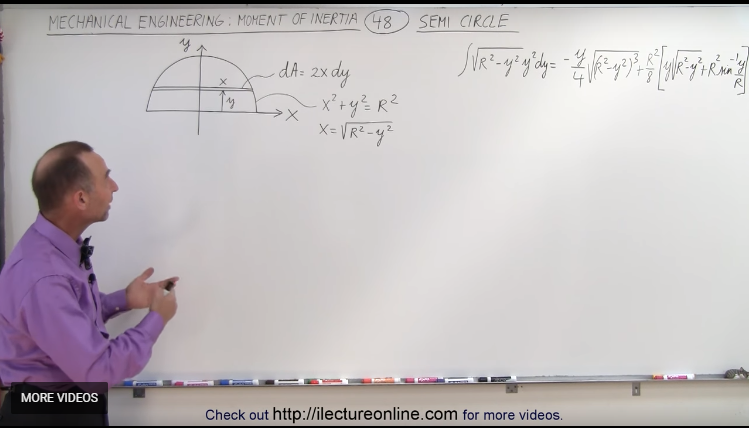 MECHANICAL ENGINEERING: MOMENT OF INERTIA 48 SEMI CIRCLE
y
x
dA = 2x dy
y
x² + y² = R²
X
x = √(R² - y²)
∫√(R² - y²) y² dy = -y/4 √(R² - y²)³ + R²/8 [y√(R² - y²) + R² sin⁻¹ y/R]
MORE VIDEOS
Check out http://ilectureonline.com for more videos.